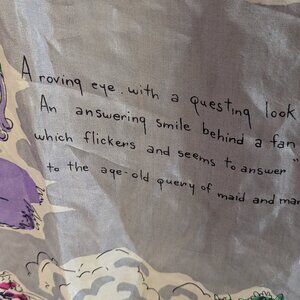 A roving eye. with a questing look
An answering smile behind a fan
which flickers and seems to answer "
to the age-old query of maid and man